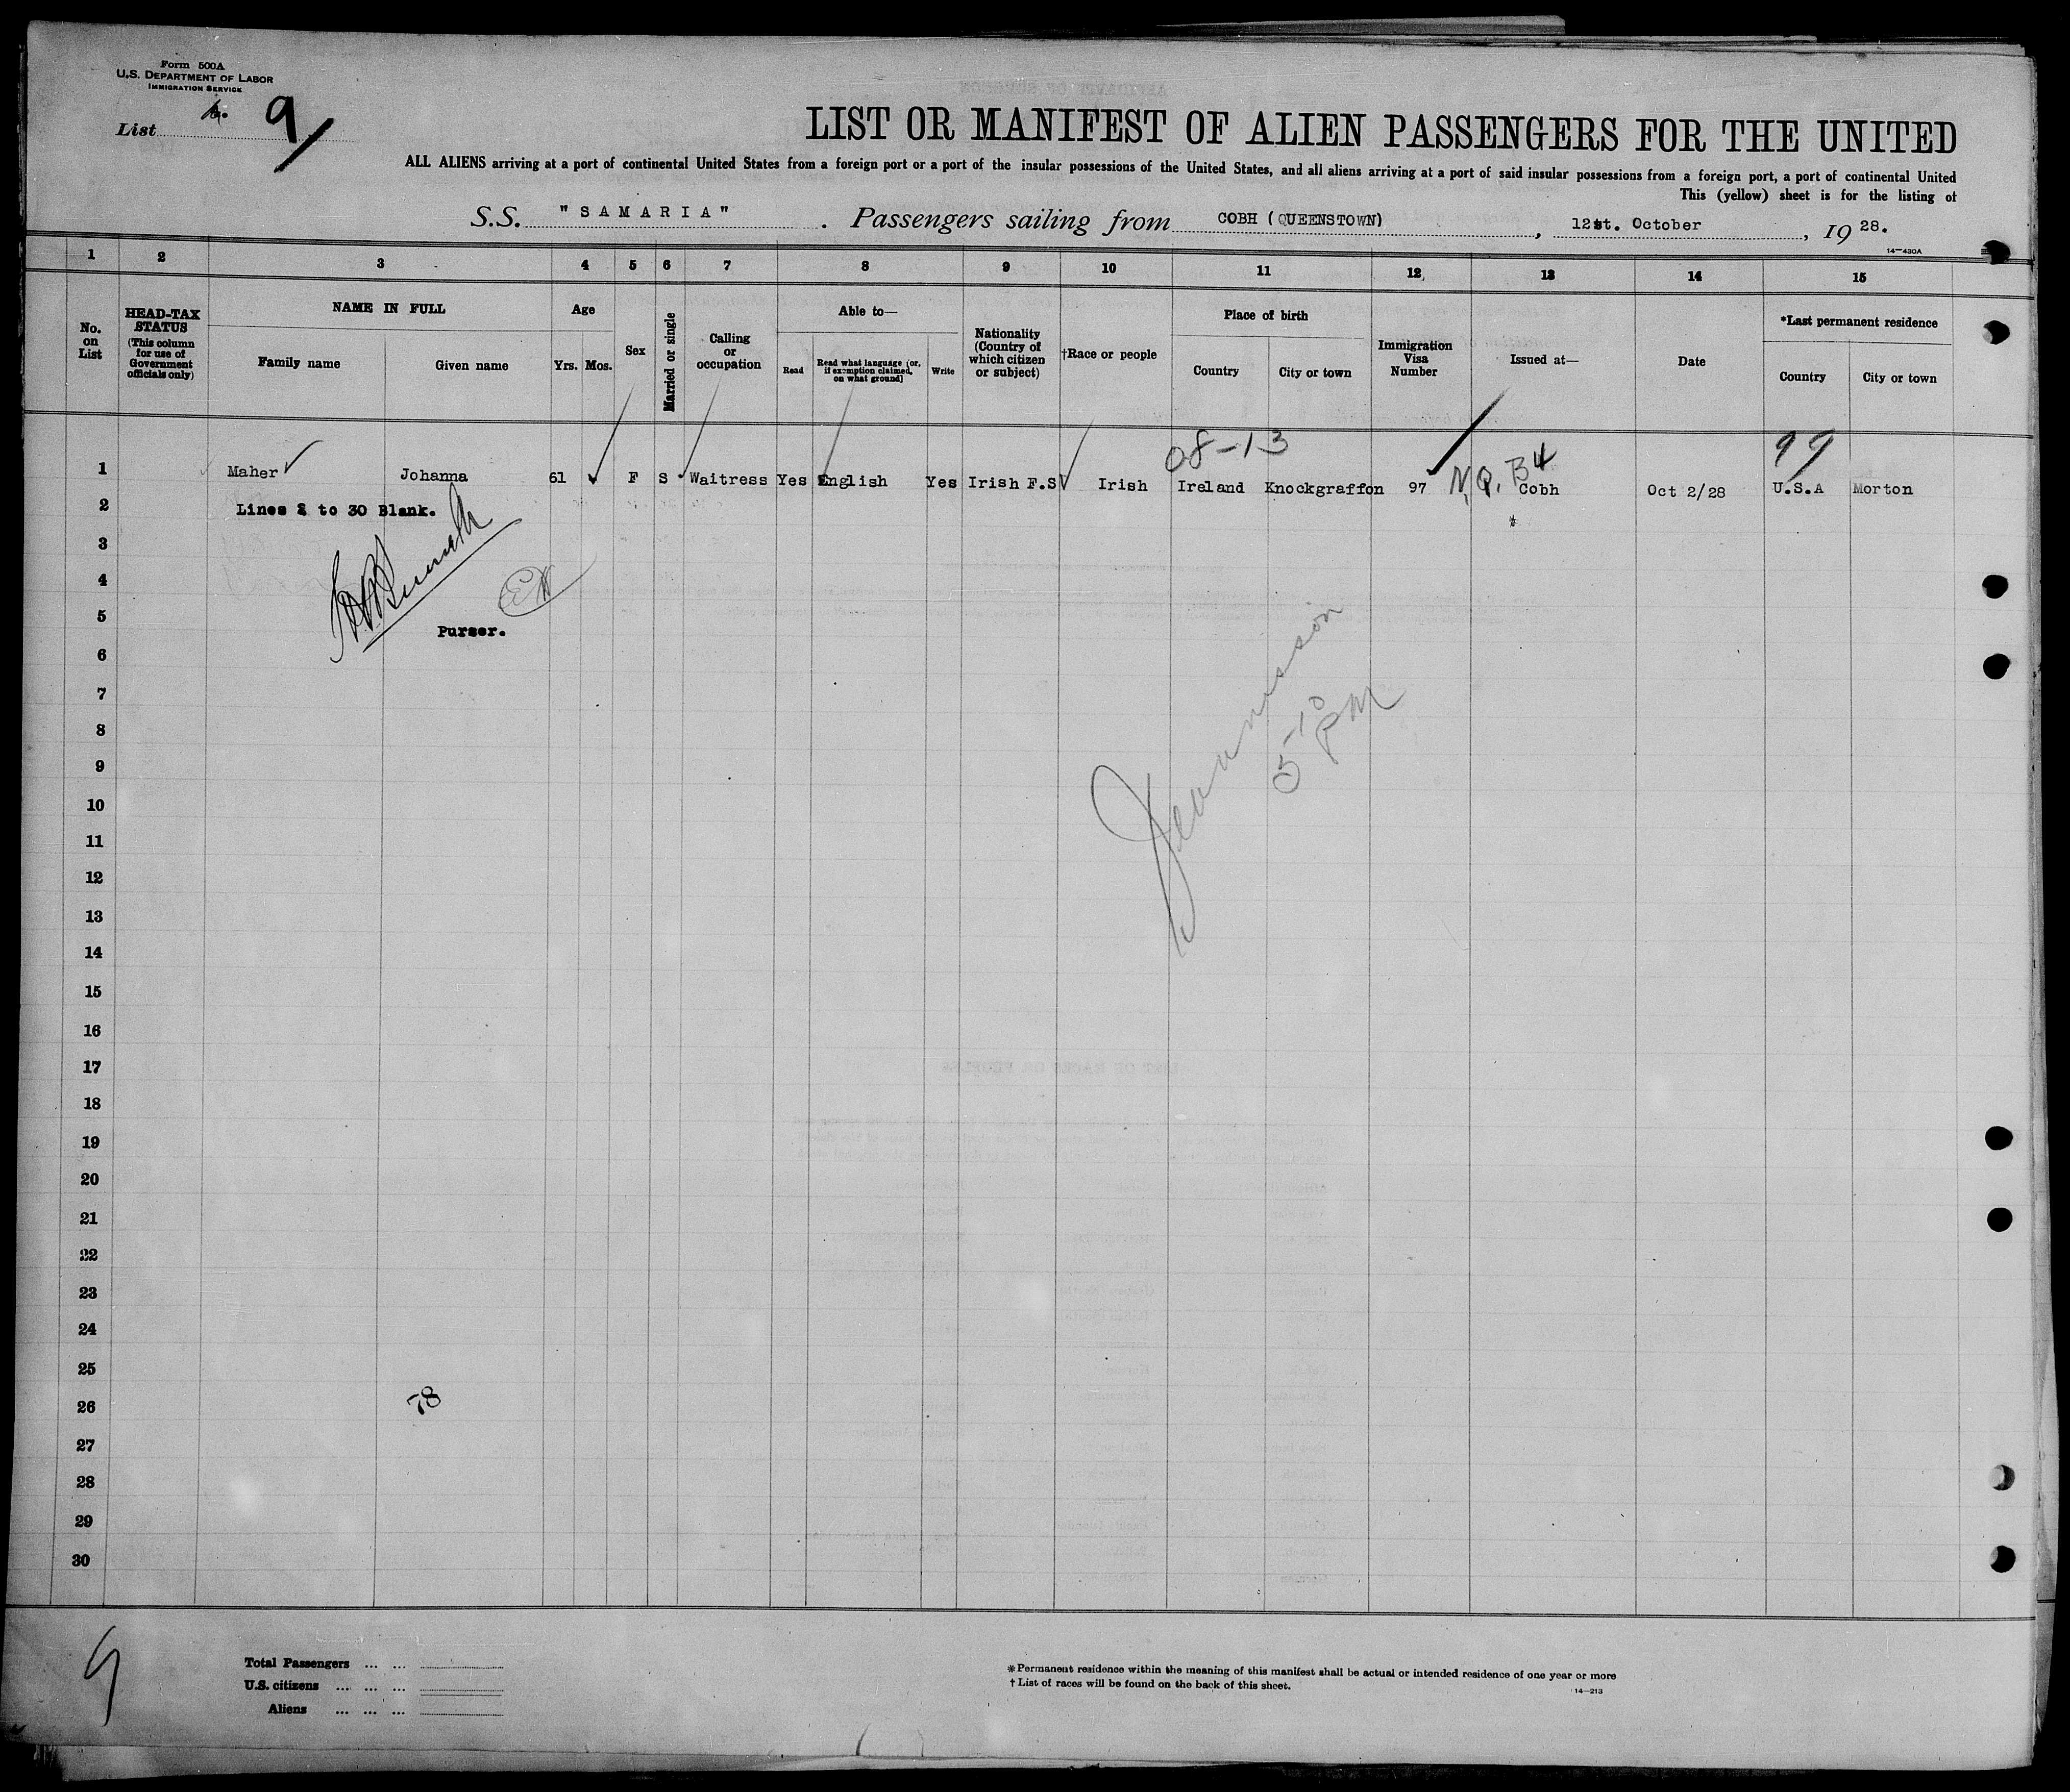 Form 500A
U.S. DEPARTMENT OF LABOR
IMMIGRATION SERVICE
List 9
LIST OR MANIFEST OF ALIEN PASSENGERS FOR THE UNITED
ALL ALIENS arriving at a port of continental United States from a foreign port or a port of the insular possessions of the United States, and all aliens arriving at a port of said insular possessions from a foreign port, a port of continental United
This (yellow) sheet is for the listing of
S.S. "SAMARIA" . Passengers sailing from COBH (QUEENSTOWN) , 12st. October , 1928.
14—430A
1 2 3 4 5 6 7 8 9 10 11 12 13 14 15
No. on List
HEAD-TAX STATUS (This column for use of Government officials only)
NAME IN FULL
Family name Given name
Age
Yrs. Mos.
Sex
Married or single
Calling or occupation
Able to—
Read Read what language [or, if exemption claimed, on what ground] Write
Nationality (Country of which citizen or subject)
†Race or people
Place of birth
Country City or town
Immigration Visa Number
Issued at—
Date
*Last permanent residence
Country City or town
08-13 99
N.Q. B4
1 Maher Johanna 61 F S Waitress Yes English Yes Irish F.S Irish Ireland Knockgraffon 97 Cobh Oct 2/28 U.S.A Morton
2 Lines 2 to 30 Blank.
3
4
5
Purser.
6
7
5-10 PM
8
9
10
11
12
13
14
15
16
17
18
19
20
21
22
23
24
25
26 78
27
28
29
30
9
Total Passengers ... ...
U.S. citizens ... ... ...
Aliens ... ... ...
*Permanent residence within the meaning of this manifest shall be actual or intended residence of one year or more
†List of races will be found on the back of this sheet.
14—213